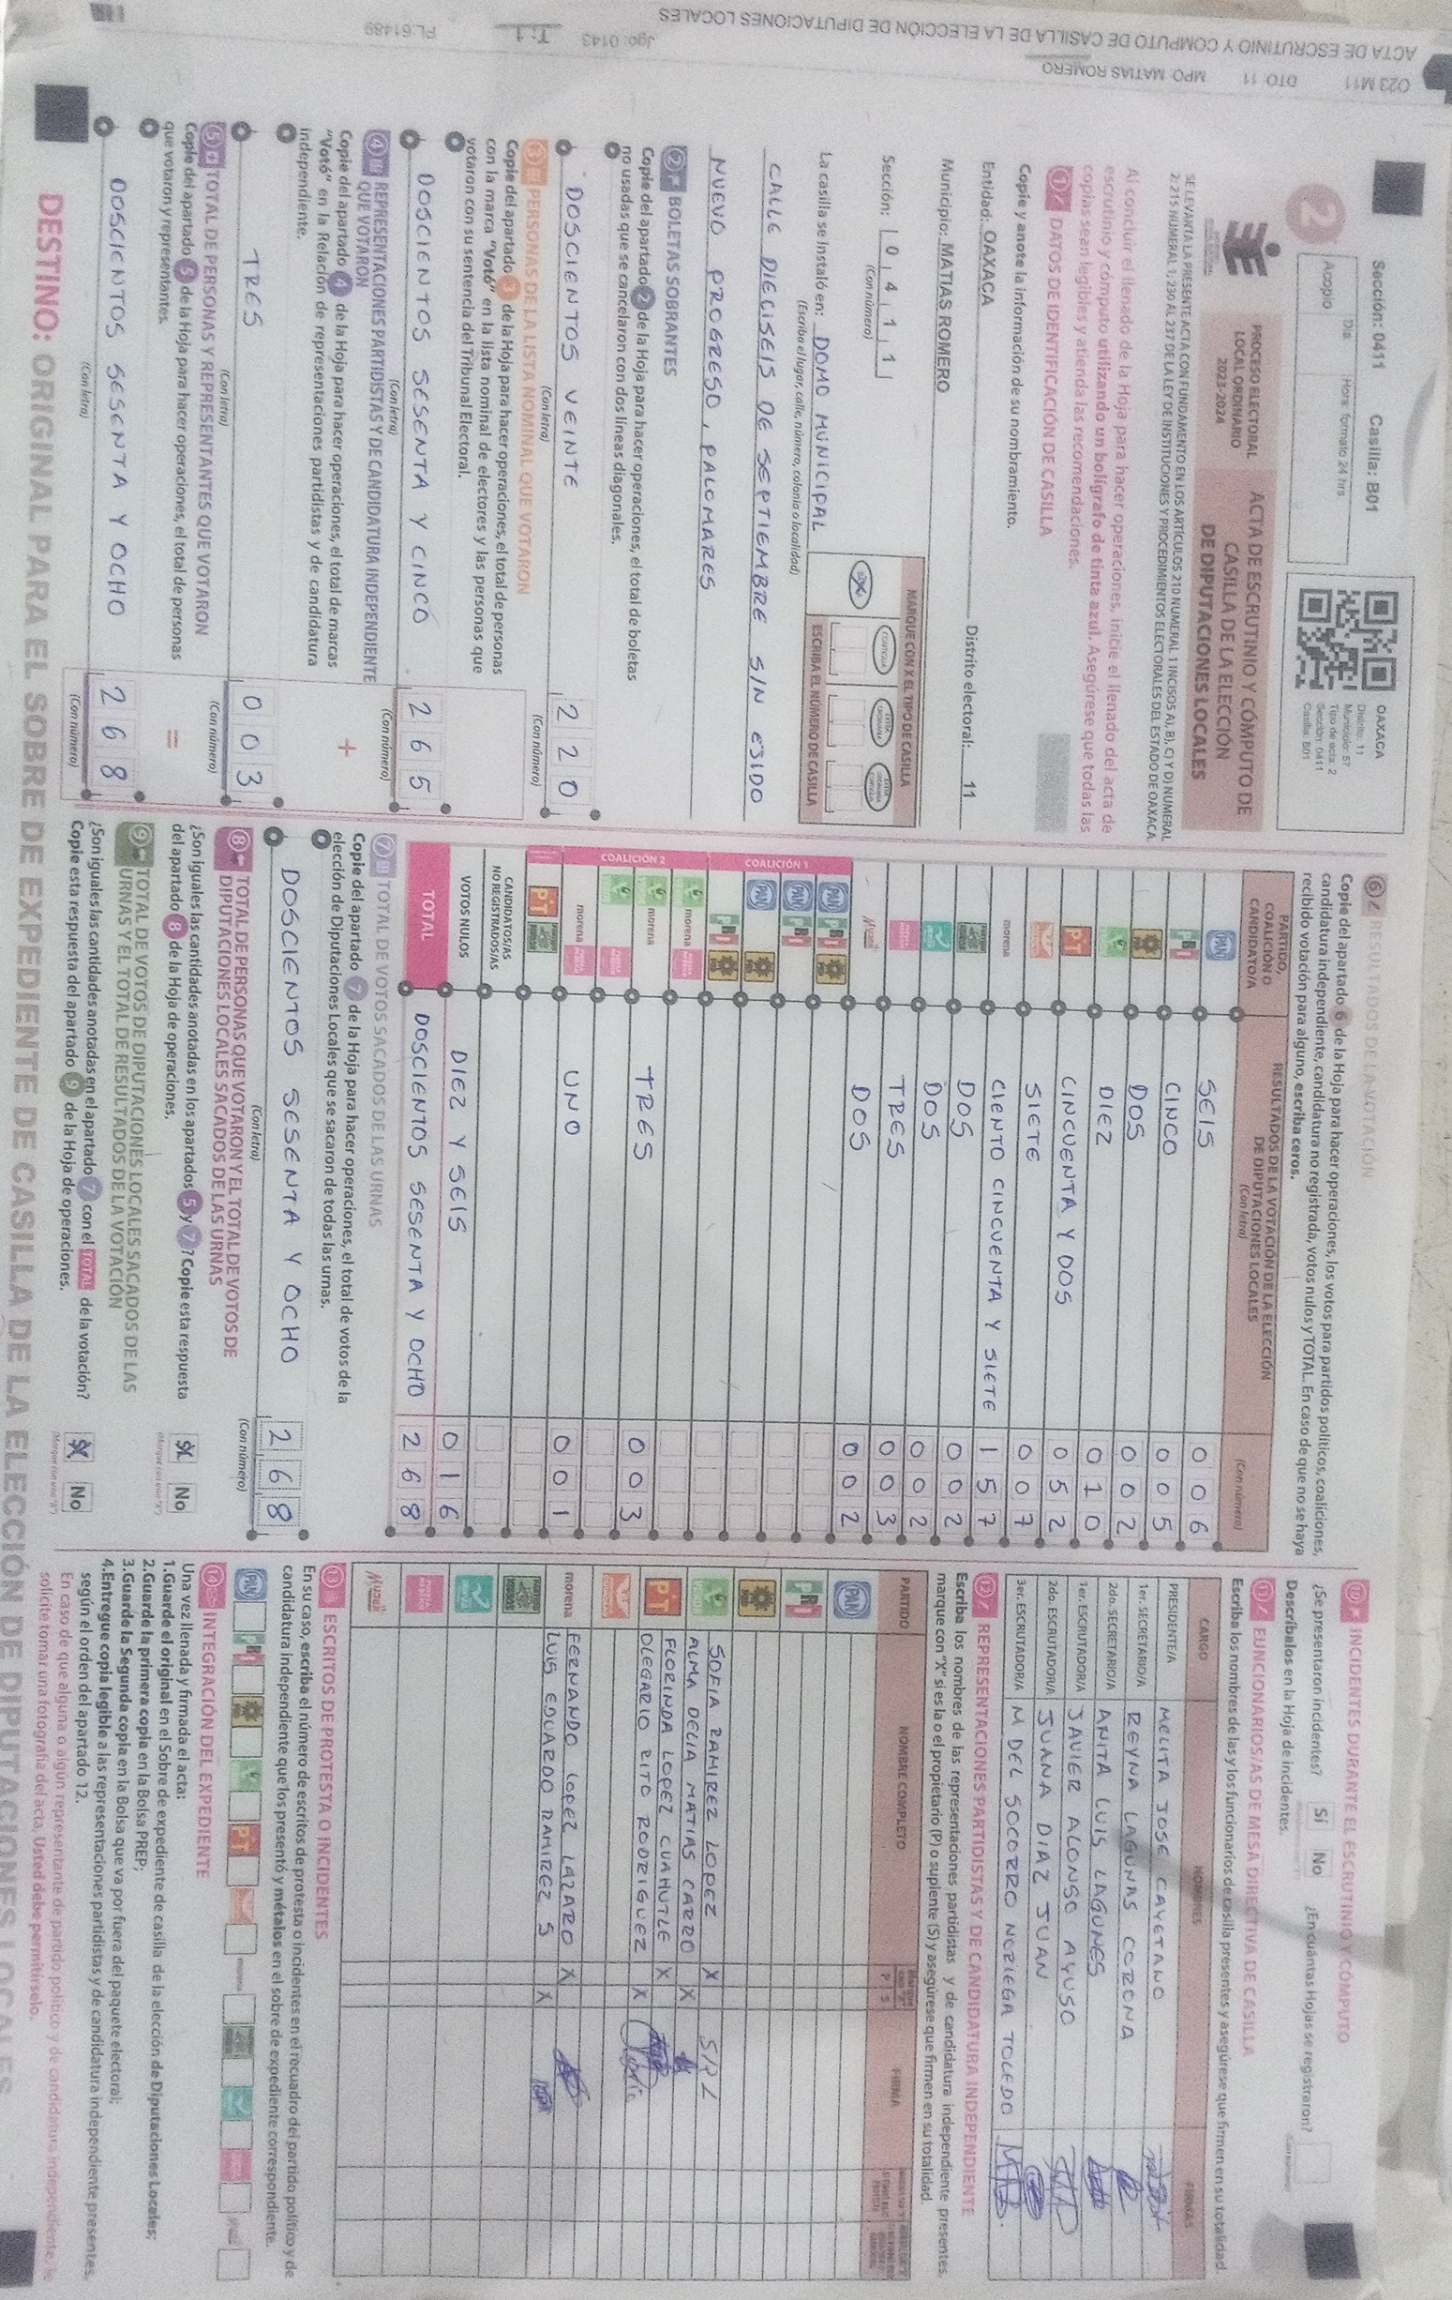 023 M11 DTO 11 MPO MATIAS ROMERO
ACTA DE ESCRUTINIO Y CÓMPUTO DE CASILLA DE LA ELECCIÓN DE DIPUTACIONES LOCALES
Jgo: 0143 T: 1 FL:61489
Sección: 0411 Casilla: B01
2
Acopio
Día
Hora: formato 24 hrs
OAXACA
Distrito: 11
Municipio: 57
Tipo de acta: 2
Sección: 0411
Casilla: B01
PROCESO ELECTORAL
LOCAL ORDINARIO
2023-2024
ACTA DE ESCRUTINIO Y CÓMPUTO DE
CASILLA DE LA ELECCIÓN
DE DIPUTACIONES LOCALES
SE LEVANTA LA PRESENTE ACTA CON FUNDAMENTO EN LOS ARTÍCULOS 210 NUMERAL 1 INCISOS A), B), C) Y D) NUMERAL
2; 215 NUMERAL 1; 230 AL 237 DE LA LEY DE INSTITUCIONES Y PROCEDIMIENTOS ELECTORALES DEL ESTADO DE OAXACA
Al concluir el llenado de la Hoja para hacer operaciones, inicie el llenado del acta de
escrutinio y cómputo utilizando un bolígrafo de tinta azul. Asegúrese que todas las
copias sean legibles y atienda las recomendaciones.
1 DATOS DE IDENTIFICACIÓN DE CASILLA
Copie y anote la información de su nombramiento.
Entidad: OAXACA
Distrito electoral: 11
Municipio: MATIAS ROMERO
Sección: 0 4 1 1
(Con número)
MARQUE CON X EL TIPO DE CASILLA
ESCRIBA EL NÚMERO DE CASILLA
La casilla se instaló en: DOMO MUNICIPAL
(Escriba el lugar, calle, número, colonia o localidad)
CALLE DIECISEIS DE SEPTIEMBRE S/N EJIDO
NUEVO PROGRESO, PALOMARES
2 BOLETAS SOBRANTES
Copie del apartado 2 de la Hoja para hacer operaciones, el total de boletas
no usadas que se cancelaron con dos líneas diagonales.
DOSCIENTOS VEINTE 2 2 0
(Con letra) (Con número)
3 PERSONAS DE LA LISTA NOMINAL QUE VOTARON
Copie del apartado 3 de la Hoja para hacer operaciones, el total de personas
con la marca "Votó" en la lista nominal de electores y las personas que
votaron con su sentencia del Tribunal Electoral.
DOSCIENTOS SESENTA Y CINCO 2 6 5
(Con letra) (Con número)
4 REPRESENTACIONES PARTIDISTAS Y DE CANDIDATURA INDEPENDIENTE
QUE VOTARON
Copie del apartado 4 de la Hoja para hacer operaciones, el total de marcas
"Votó" en la Relación de representaciones partidistas y de candidatura
independiente.
+
TRES 0 0 3
(Con letra) (Con número)
5 TOTAL DE PERSONAS Y REPRESENTANTES QUE VOTARON
Copie del apartado 5 de la Hoja para hacer operaciones, el total de personas
que votaron y representantes.
=
DOSCIENTOS SESENTA Y OCHO 2 6 8
(Con letra) (Con número)
6 RESULTADOS DE LA VOTACIÓN
Copie del apartado 6 de la Hoja para hacer operaciones, los votos para partidos políticos, coaliciones,
candidatura independiente, candidatura no registrada, votos nulos y TOTAL. En caso de que no se haya
recibido votación para alguno, escriba ceros.
PARTIDO,
COALICIÓN O
CANDIDATO/A
RESULTADOS DE LA VOTACIÓN DE LA ELECCIÓN
DE DIPUTACIONES LOCALES
(Con letra)
(Con número)
PAN SEIS 0 0 6
PRI CINCO 0 0 5
DOS 0 0 2
DIEZ 0 1 0
PT CINCUENTA Y DOS 0 5 2
SIETE 0 0 7
morena CIENTO CINCUENTA Y SIETE 1 5 7
DOS 0 0 2
DOS 0 0 2
TRES 0 0 3
DOS 0 0 2
COALICIÓN 1
PAN PRI
PAN PRI
PAN
PRI
COALICIÓN 2
morena
morena TRES 0 0 3
morena UNO 0 0 1
PT
CANDIDATOS/AS
NO REGISTRADOS/AS
VOTOS NULOS DIEZ Y SEIS 0 1 6
TOTAL DOSCIENTOS SESENTA Y OCHO 2 6 8
7 TOTAL DE VOTOS SACADOS DE LAS URNAS
Copie del apartado 7 de la Hoja para hacer operaciones, el total de votos de la
elección de Diputaciones Locales que se sacaron de todas las urnas.
DOSCIENTOS SESENTA Y OCHO 2 6 8
(Con letra) (Con número)
8 TOTAL DE PERSONAS QUE VOTARON Y EL TOTAL DE VOTOS DE
DIPUTACIONES LOCALES SACADOS DE LAS URNAS
¿Son iguales las cantidades anotadas en los apartados 5 y 7? Copie esta respuesta
del apartado 8 de la Hoja de operaciones.
Sí No
9 TOTAL DE VOTOS DE DIPUTACIONES LOCALES SACADOS DE LAS
URNAS Y EL TOTAL DE RESULTADOS DE LA VOTACIÓN
¿Son iguales las cantidades anotadas en el apartado 7 con el TOTAL de la votación?
Copie esta respuesta del apartado 9 de la Hoja de operaciones.
Sí No
10 INCIDENTES DURANTE EL ESCRUTINIO Y CÓMPUTO
¿Se presentaron incidentes? Sí No ¿En cuántas Hojas se registraron?
Descríbalos en la Hoja de incidentes.
11 FUNCIONARIOS/AS DE MESA DIRECTIVA DE CASILLA
Escriba los nombres de las y los funcionarios de casilla presentes y asegúrese que firmen en su totalidad.
CARGO NOMBRES FIRMAS
PRESIDENTE/A MELITA JOSE CAYETANO
1er. SECRETARIO/A REYNA LAGUNAS CORONA
2do. SECRETARIO/A ANITA LUIS LAGUNES
1er. ESCRUTADOR/A JAVIER ALONSO AYUSO
2do. ESCRUTADOR/A JUANA DIAZ JUAN
3er. ESCRUTADOR/A M DEL SOCORRO NORIEGA TOLEDO
12 REPRESENTACIONES PARTIDISTAS Y DE CANDIDATURA INDEPENDIENTE
Escriba los nombres de las representaciones partidistas y de candidatura independiente presentes,
marque con "X" si es la o el propietario (P) o suplente (S) y asegúrese que firmen en su totalidad.
PARTIDO NOMBRE COMPLETO P S FIRMA
PAN
PRI
SOFIA RAMIREZ LOPEZ X SRL
ALMA DELIA MATIAS CARRO X
PT FLORINDA LOPEZ CUAHUTLE X
OLEGARIO RITO RODRIGUEZ X
morena FERNANDO LOPEZ LAZARO X
LUIS EDUARDO RAMIREZ S X
13 ESCRITOS DE PROTESTA O INCIDENTES
En su caso, escriba el número de escritos de protesta o incidentes en el recuadro del partido político y de
candidatura independiente que los presentó y métalos en el sobre de expediente correspondiente.
PAN PRI PT
14 INTEGRACIÓN DEL EXPEDIENTE
Una vez llenada y firmada el acta:
1.Guarde el original en el Sobre de expediente de casilla de la elección de Diputaciones Locales;
2.Guarde la primera copia en la Bolsa PREP;
3.Guarde la Segunda copia en la Bolsa que va por fuera del paquete electoral;
4.Entregue copia legible a las representaciones partidistas y de candidatura independiente presentes,
según el orden del apartado 12.
En caso de que alguna o algún representante de partido político y de candidatura independiente, le
solicite tomar una fotografía del acta, Usted debe permitírselo.
DESTINO: ORIGINAL PARA EL SOBRE DE EXPEDIENTE DE CASILLA DE LA ELECCIÓN DE DIPUTACIONES LOCALES